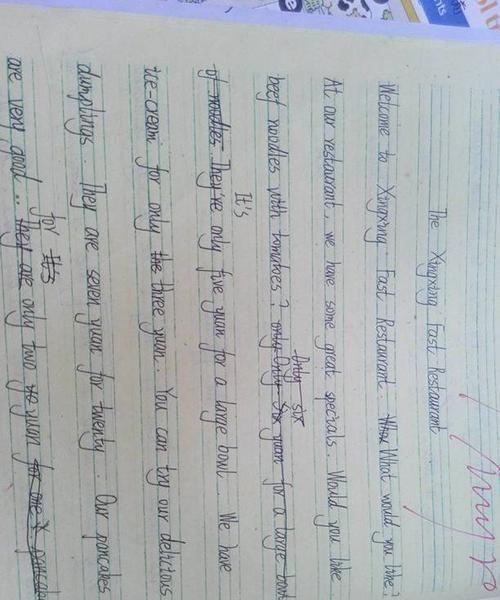 The Xingxing Fast Restaurant
Welcome to Xingxing Fast Restaurant. What would you like?
At our restaurant, we have some great specials. Would you like
Only six
beef noodles with tomatoes? only Only six yuan for a large bowl
It's
of noodles They're only five yuan for a large bowl. We have
ice-cream for only the three yuan. You can try our delicious
dumplings. They are seven yuan for twenty. Our pancakes
for It's
are very good.. they are only two yuan for one pancake